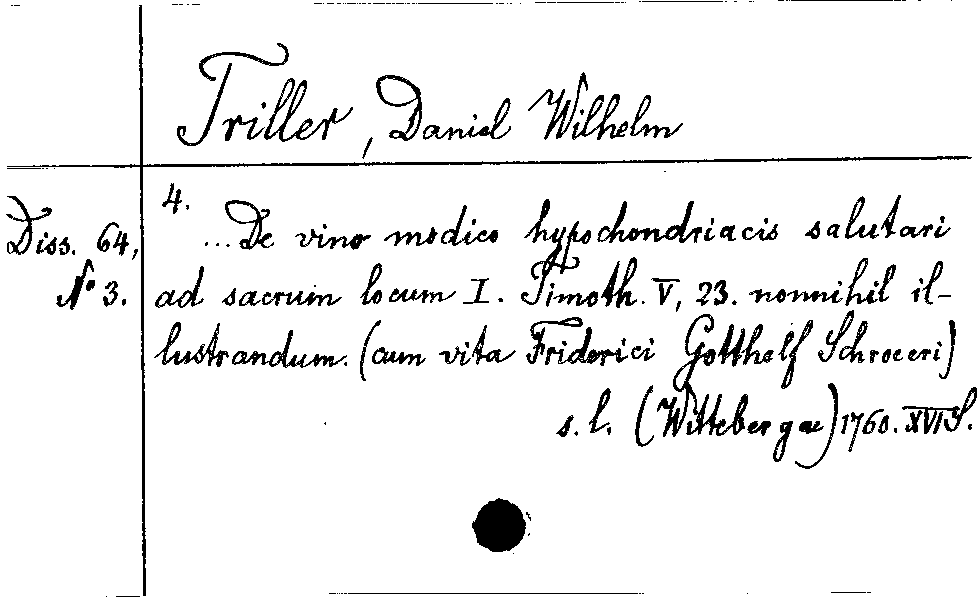 Triller, Daniel Wilhelm
Diss. 64,
No 3.
4.
...De vino modico hypochondriacis salutari
ad sacrum locum I. Timoth. V, 23. nonnihil il-
lustrandum. (cum vita Friderici Gotthelf Schroeeri)
s. l. (Wittebergae) 1760. XVI S.